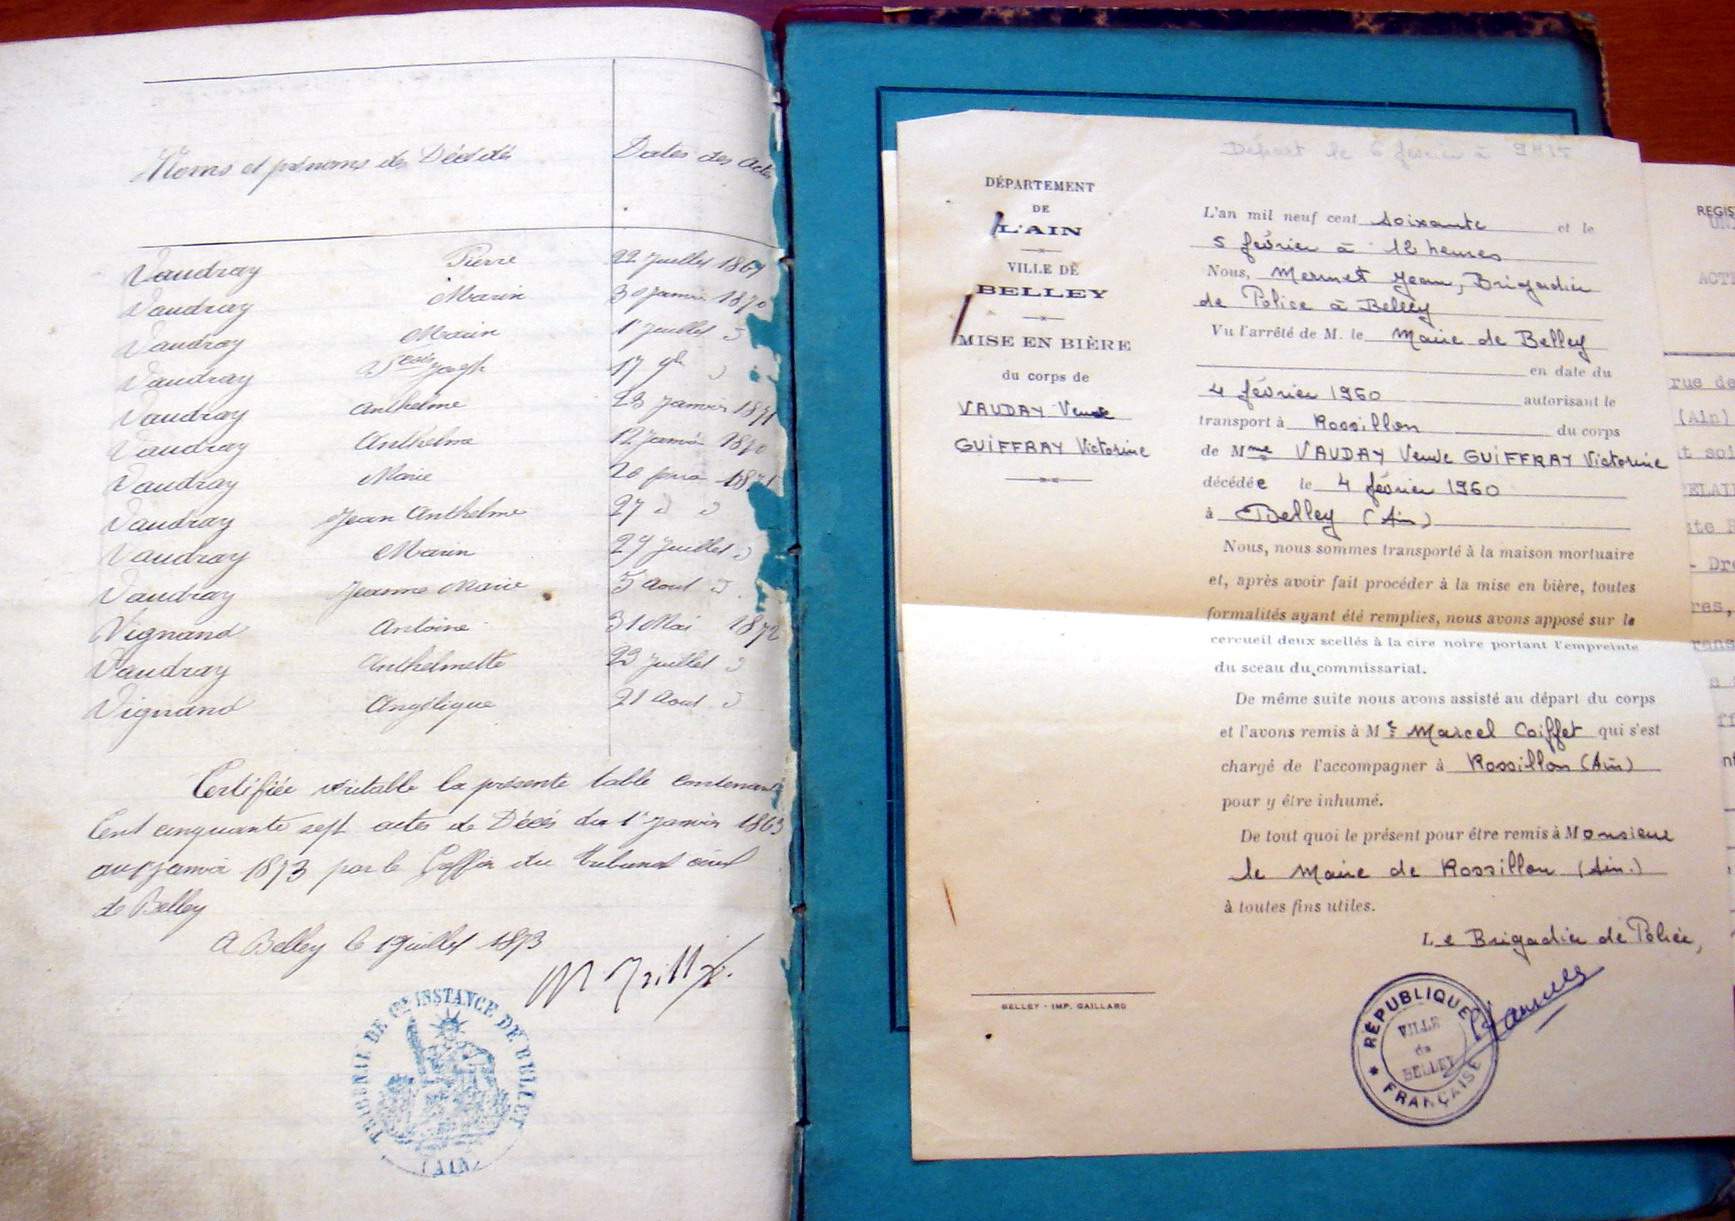 Noms et prénoms des Décédés
Dates des actes
Vaudray Pierre 22 Juillet 1869
Vaudray Marin 30 Janvier 1870
Vaudray Marin 1r Juillet "
Vaudray Joseph 17 9bre "
Vaudray Anthelme 23 Janvier 1871
Vaudray Anthelme 12 Janvier 1870
Vaudray Marie 20 1871
Vaudray Jean Anthelme 27 " "
Vaudray Marin 29 Juillet "
Vaudray Jeanne Marie 5 Aout "
Vignand Antoine 31 Mai 1872
Vaudray Anthelmette 23 Juillet "
Vignand Angélique 21 Aout "
Certifiée véritable la présente table contenant
Cent cinquante sept actes de Décès du 1r Janvier 1863
au 1r Janvier 1873 par le Greffier du tribunal civil
de Belley
A Belley le Juillet 1873
TRIBUNAL DE 1ère INSTANCE DE BELLEY
(AIN)
Départ le 6 février à 9H15
DÉPARTEMENT
DE
L'AIN
VILLE DE
BELLEY
MISE EN BIÈRE
du corps de
VAUDAY Veuve
GUIFFRAY Victorine
BELLEY - IMP. GAILLARD
L'an mil neuf cent soixante et le
5 février à 12 heures
Nous, Mermet Jean, Brigadier
de Police à Belley
Vu l'arrêté de M. le Maire de Belley
en date du
4 février 1960 autorisant le
transport à Rossillon du corps
de Mme VAUDAY Veuve GUIFFRAY Victorine
décédée le 4 février 1960
à Belley (Ain)
Nous, nous sommes transporté à la maison mortuaire
et, après avoir fait procéder à la mise en bière, toutes
formalités ayant été remplies, nous avons apposé sur le
cercueil deux scellés à la cire noire portant l'empreinte
du sceau du commissariat.
De même suite nous avons assisté au départ du corps
et l'avons remis à Mr Marcel Coiffet qui s'est
chargé de l'accompagner à Rossillon (Ain)
pour y être inhumé.
De tout quoi le présent pour être remis à Monsieur
le Maire de Rossillon (Ain.)
à toutes fins utiles.
Le Brigadier de Police,
RÉPUBLIQUE FRANÇAISE
VILLE
de
BELLEY
REGIS
ACTE
rue de
(Ain)